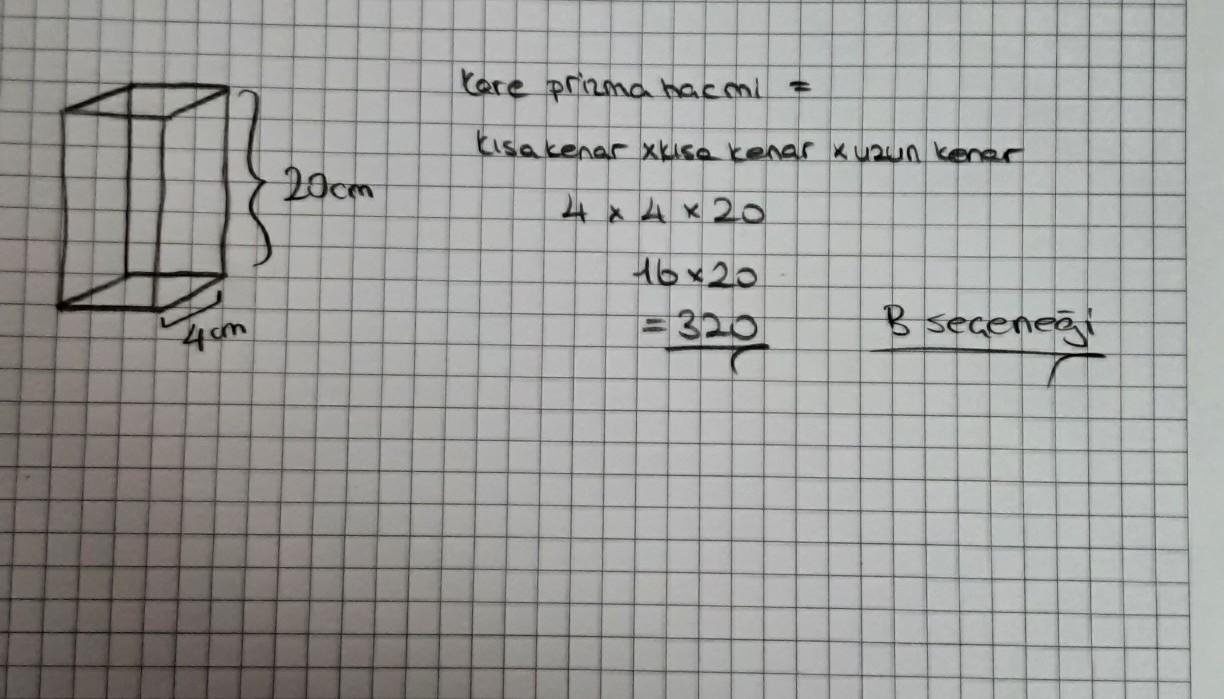 Kare prizma hacmi =
kısa kenar x kısa kenar x uzun kenar
20cm
4 x 4 x 20
16 x 20
4cm
= 320
B seçeneği